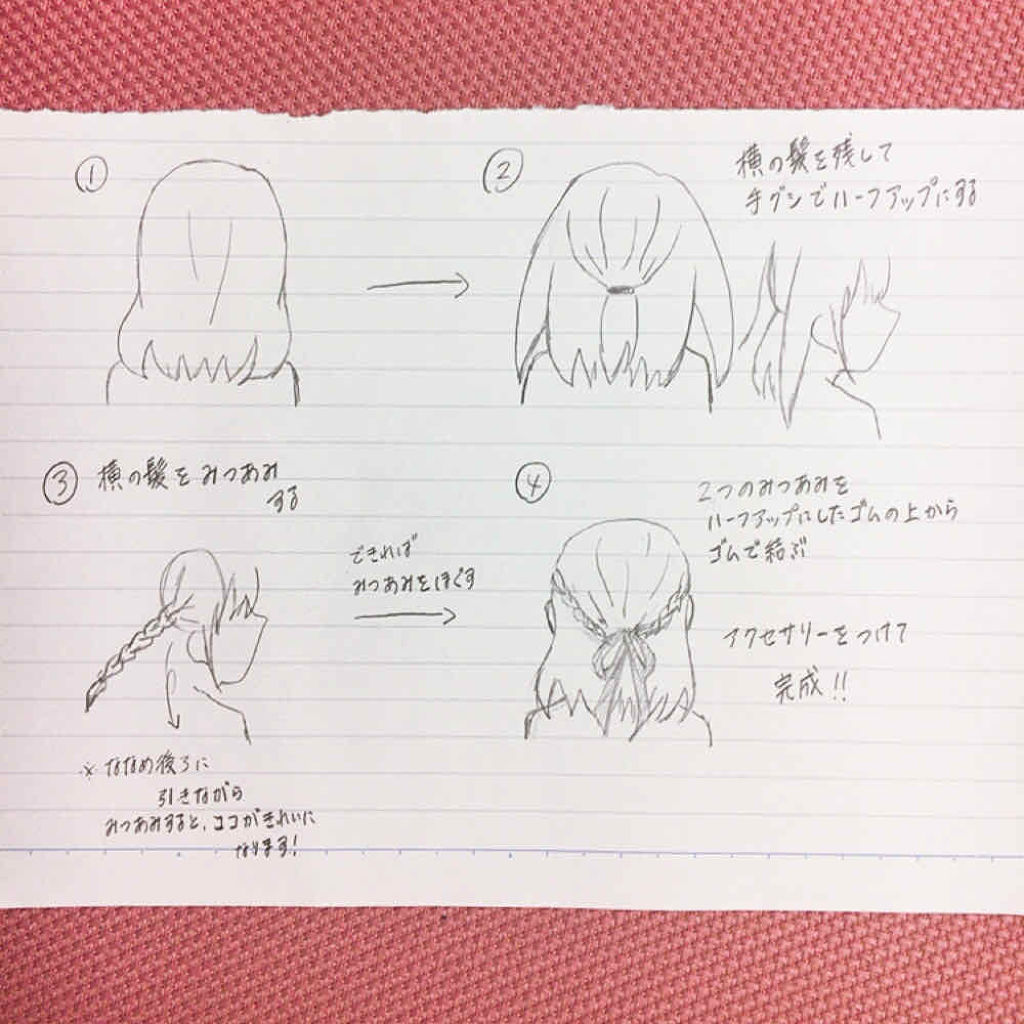 ①
②
横の髪を残して
手グシでハーフアップにする
③ 横の髪をみつあみ
する
できれば
みつあみをほぐす
④
2つのみつあみを
ハーフアップにしたゴムの上から
ゴムで結ぶ
アクセサリーをつけて
完成!!
※ ななめ後ろに
引きながら
みつあみすると、ココがきれいに
なります!